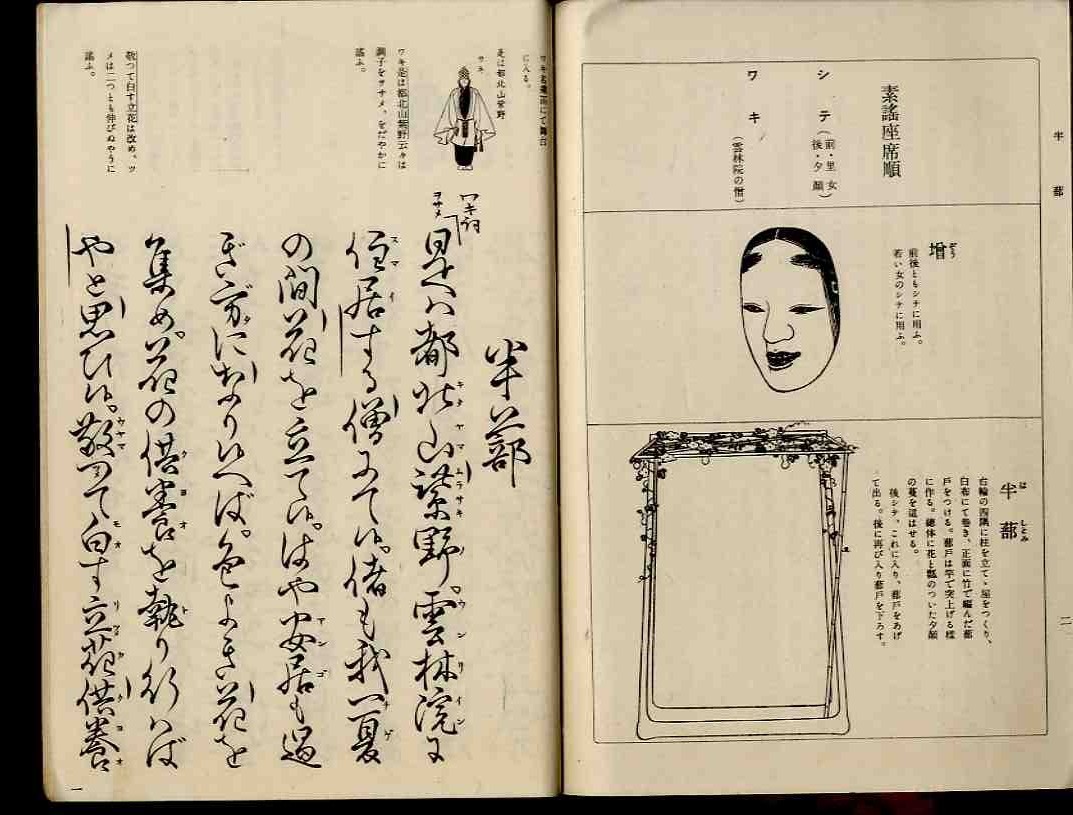 半蔀
二
素謡座席順
シテ（前・里女
後・夕顔）
ワキ
（雲林院の僧）
増
ぞう
前後ともシテに用ふ。
若い女のシテに用ふ。
半蔀
はしとみ
台輪の四隅に柱を立て、屋をつくり、
白布にて巻き、正面に竹で編んだ蔀
戸をつける。蔀戸は竿で突上げる様
に作る。總体に花と瓢のついた夕顔
の蔓を這はせる。
後シテ、これに入り、蔀戸をあげ
て出る。後に再び入り蔀戸を下ろす。
ワキ名乗座にて舞台
に入る。
是は都北山紫野
ワキ
ワキ是は都北山紫野云々は
調子をヲサメ、をだやかに
謡ふ。
敬つて白す立花は改め、ツ
メは二つとも伸びぬやうに
謡ふ。
半蔀
ワキ詞
ヲサメ
是ハ都北山紫野。雲林院に
キタヤマムラサキ
ウンリイン
住居する僧にて候。偖も我一夏
スマイ
ゲ
の間花を立て候。はや安居も過
アンゴ
ぎ方になり候へば。色よき花を
集め。花の供養を執り行はば
クヨオ
ト
やと思ひ候。敬つて白す立花供養
ウヤマ
モオ
リツクワクヨオ
一